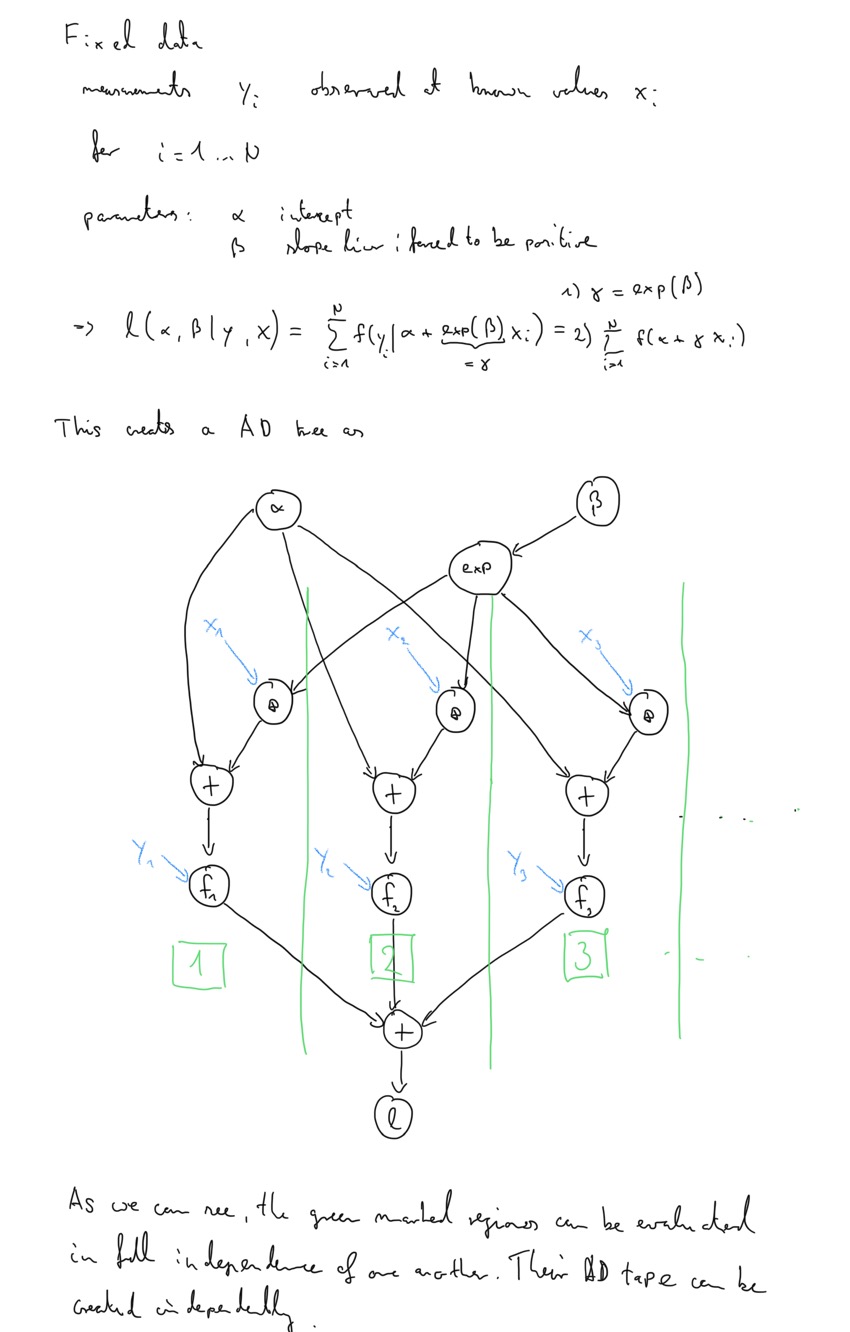 Fixed data
measurements y_i observed at known values x_i
for i = 1 ... N
parameters: α intercept
β slope; forced to be positive
1) γ = exp(β)
=> l(α, β | y, x) = \sum_{i=1}^{N} f(y_i | α + \underbrace{exp(β)}_{= γ} x_i) = 2) \sum_{i=1}^{N} f(α + γ x_i)
This creates a AD tree as
α
β
exp
x_1
x_2
x_3
+ + +
y_1 y_2 y_3
f_1 f_2 f_3
1 2 3
+
l
As we can see, the green marked regions can be evaluated
in full independence of one another. Their AD tape can be
created independently.